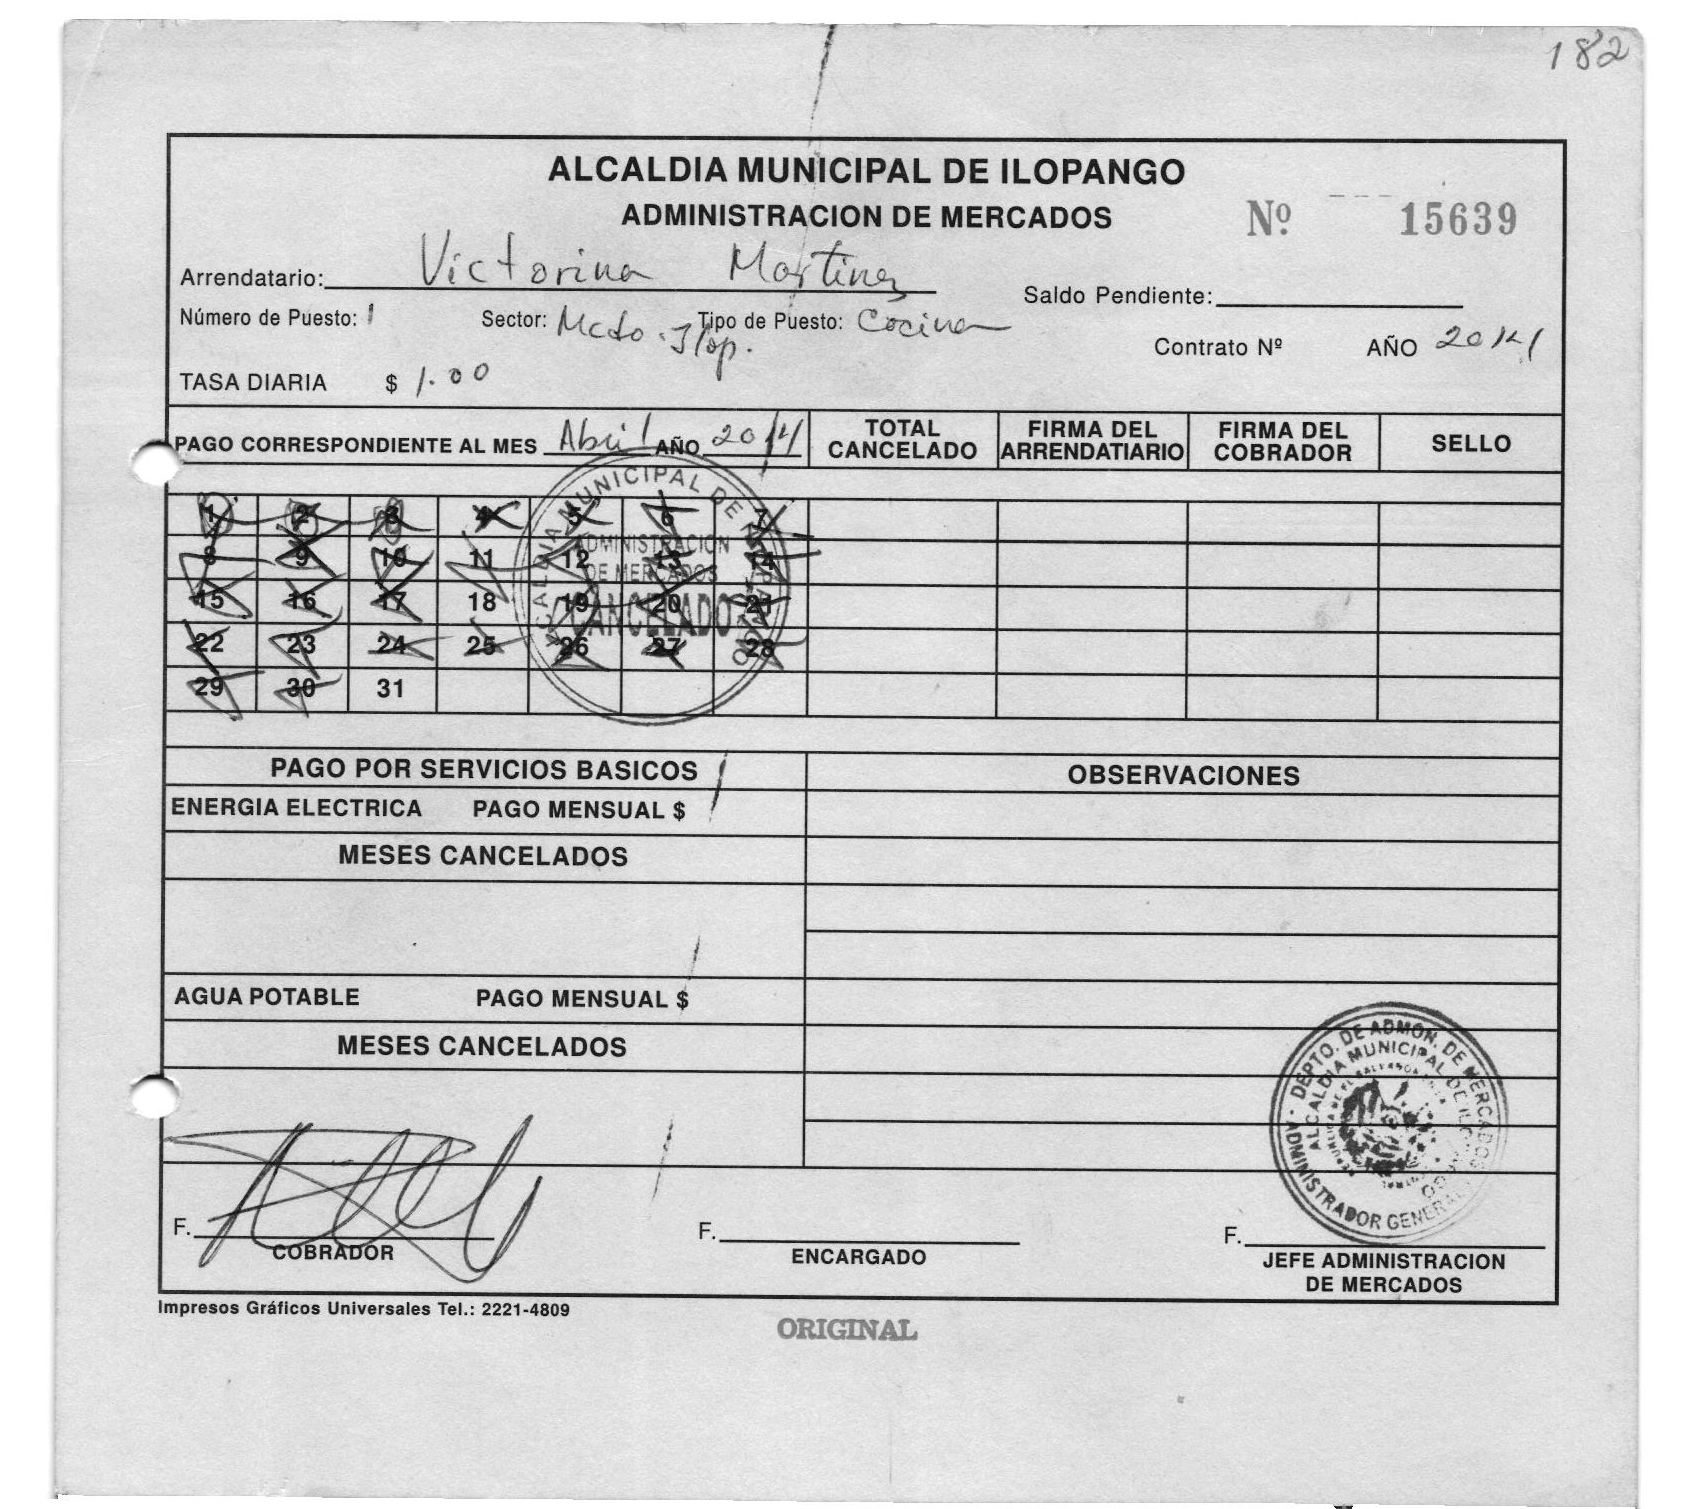 182
ALCALDIA MUNICIPAL DE ILOPANGO
ADMINISTRACION DE MERCADOS
Nº 15639
Arrendatario: Victorina Martinez
Saldo Pendiente:
Número de Puesto: 1 Sector: Mcdo. Ilop. Tipo de Puesto: Cocina
Contrato Nº AÑO 2014
TASA DIARIA $ 1.00
PAGO CORRESPONDIENTE AL MES Abril AÑO 2014
TOTAL CANCELADO
FIRMA DEL ARRENDATIARIO
FIRMA DEL COBRADOR
SELLO
1 2 3 4 5 6 7
8 9 10 11 12 13 14
15 16 17 18 19 20 21
22 23 24 25 26 27 28
29 30 31
ALCALDIA MUNICIPAL DE ILOPANGO
ADMINISTRACION
DE MERCADOS
CANCELADO
PAGO POR SERVICIOS BASICOS
OBSERVACIONES
ENERGIA ELECTRICA PAGO MENSUAL $
MESES CANCELADOS
AGUA POTABLE PAGO MENSUAL $
MESES CANCELADOS
DEPTO. DE ADMON. DE MERCADOS
ALCALDIA MUNICIPAL DE
ADMINISTRADOR GENERAL
F.
COBRADOR
F.
ENCARGADO
F.
JEFE ADMINISTRACION
DE MERCADOS
Impresos Gráficos Universales Tel.: 2221-4809
ORIGINAL